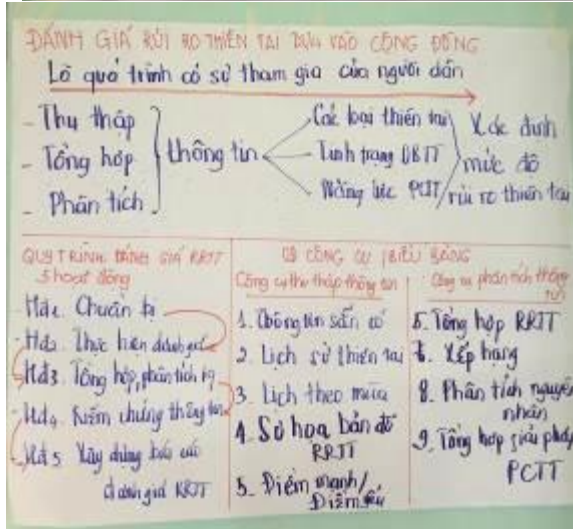 ĐÁNH GIÁ RỦI RO THIÊN TAI DỰA VÀO CỘNG ĐỒNG
Là quá trình có sự tham gia của người dân
- Thu thập
- Tổng hợp
- Phân tích
thông tin
Các loại thiên tai
Tình trạng DBTT
Năng lực PCTT
Xác định
mức độ
rủi ro thiên tai
QUY TRÌNH ĐÁNH GIÁ RRTT
5 hoạt động
- Hđ1. Chuẩn bị
- Hđ2. Thực hiện đánh giá
- Hđ3. Tổng hợp, phân tích
- Hđ4. Kiểm chứng thông tin
- Hđ5. Xây dựng báo cáo
đánh giá RRTT
CÔNG CỤ / BIỂU BẢNG
Công cụ thu thập thông tin
1. Thông tin sẵn có
2. Lịch sử thiên tai
3. Lịch theo mùa
4. Sơ họa bản đồ
RRTT
5. Điểm mạnh/
Điểm yếu
Công cụ phân tích thông
tin
Tổng hợp RRTT
Xếp hạng
8. Phân tích nguyên
nhân
9. Tổng hợp giải pháp
PCTT